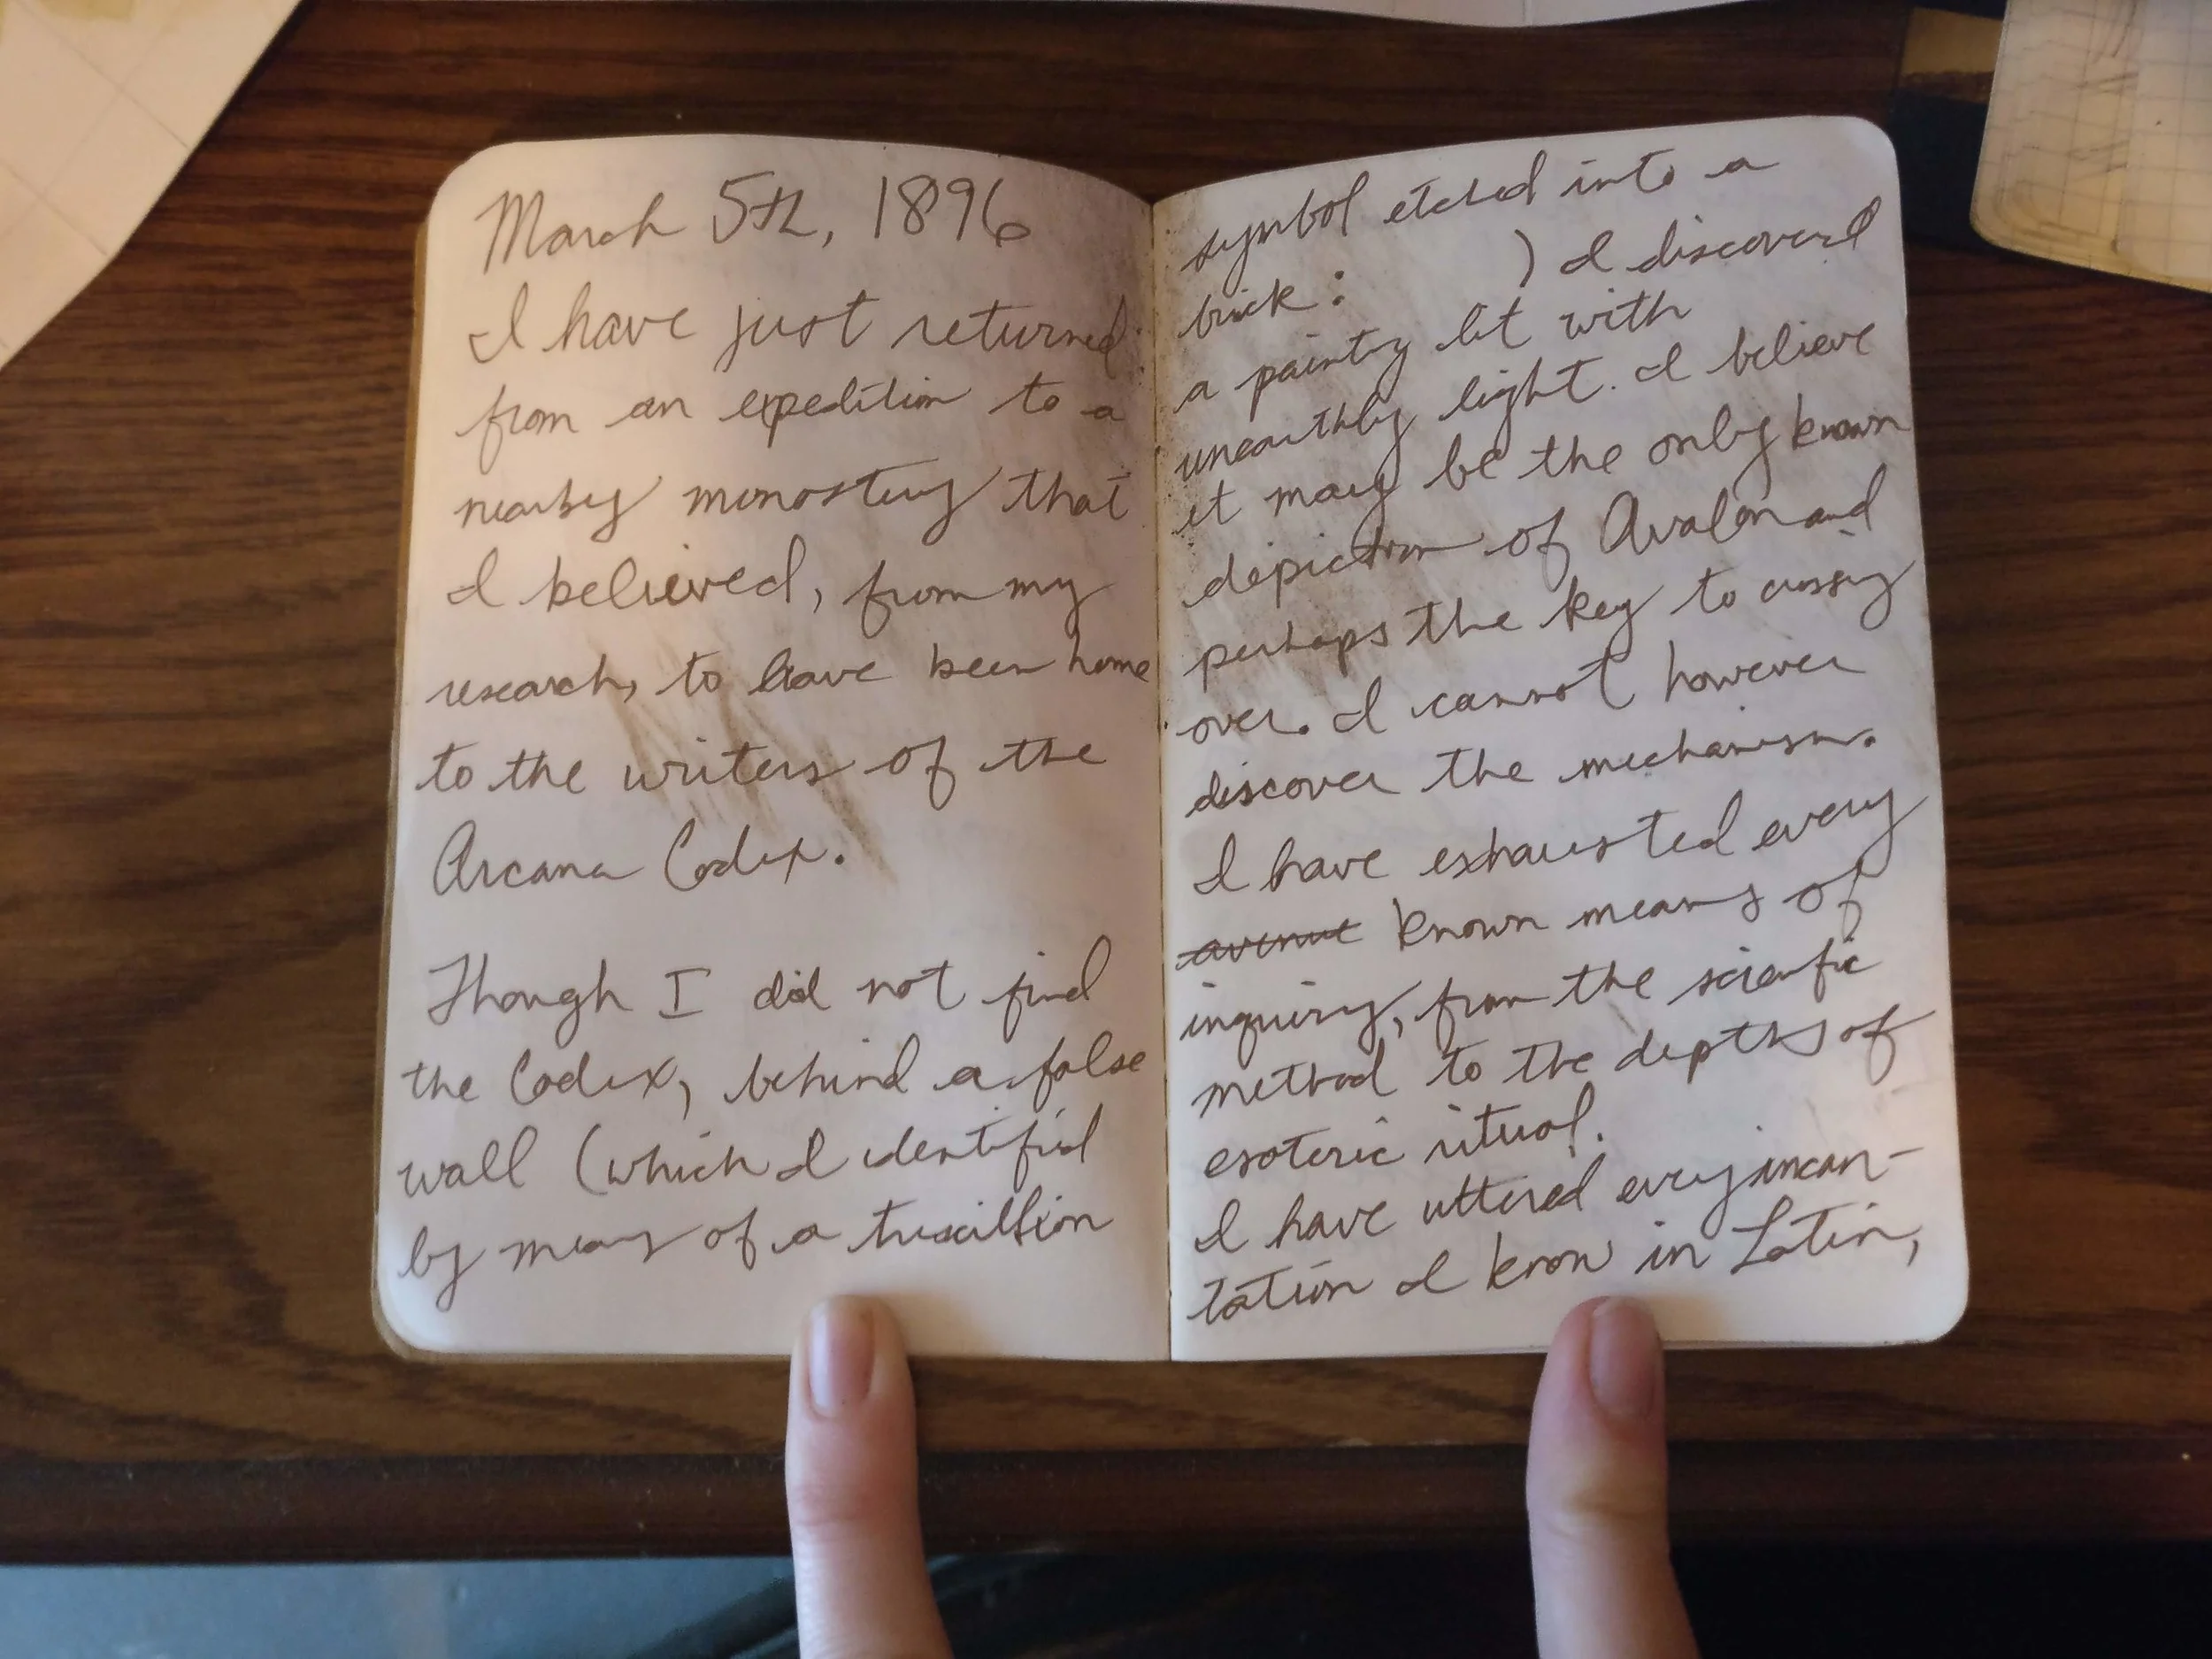 March 5th, 1896
I have just returned
from an expedition to a
nearby monastery that
I believed, from my
research, to have been home
to the writers of the
Arcana Codex.
Though I did not find
the Codex, behind a false
wall (which I identified
by means of a
symbol etched into a
brick: ) I discovered
a painting lit with
unearthly light. I believe
it may be the only known
depiction of Avalon and
perhaps the key to crossing
over. I cannot however
discover the mechanism.
I have exhausted every
avenue known means of
inquiry, from the scientific
method to the depths of
esoteric ritual.
I have uttered every incan-
tation I know in Latin,